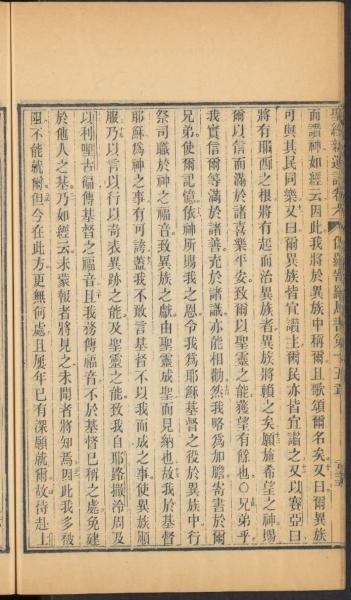 而讚神如經云因此我將於異族中稱爾且歌頌爾名矣又曰爾異族
可與其民同樂又曰爾異族皆宜讚上主爾民亦皆宜讚之又以賽亞曰
將有耶西之根將有起而治異族者異族將賴之矣願施希望之神賜
爾以信而滿於諸喜樂平安致爾以聖靈之能獲望有餘也○兄弟乎
我實信爾等滿於諸善充於諸識亦能相勸然我略為加膽寄書於爾
兄弟使爾記憶依神所賜我之恩令我為耶穌基督之役於異族中行
祭司職於神之福音致異族之獻由聖靈成聖而見納也故我於基督
耶穌為神之事有可誇蓋我不敢言基督不以我而成之事使異族順
服乃以言以行以奇表異跡之能及聖靈之能致我自耶路撒冷周及
以利哩古徧傳基督之福音且我務傳福音不於基督已稱之處免建
於他人之基乃如經云未蒙報者將見之未聞者將知焉因此我多被
阻不能就爾但今在此方更無何處且屢年已有深願就爾故待赴士